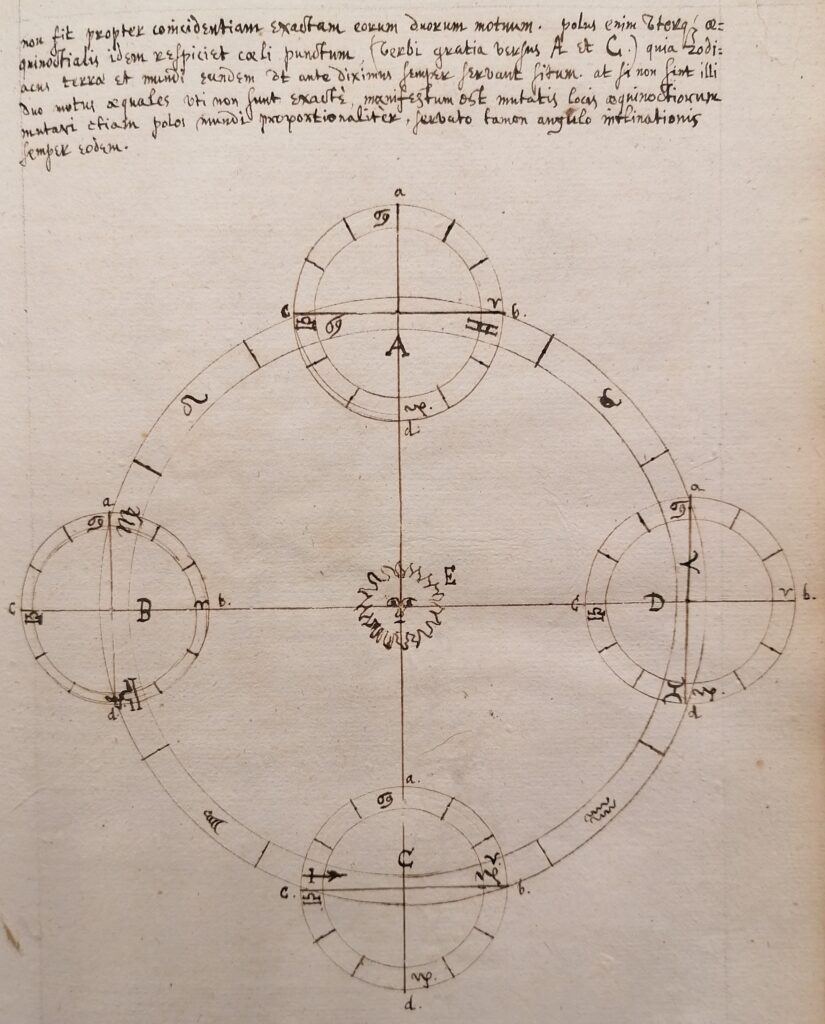 non fit propter coincidentiam exactam eorum duorum motuum. polus enim vterq́ æ=
quinoctialis idem respiciet cœli punctum, (verbi gratia versus A et C.) quia zodi:
acus terræ et mundi eundem vt ante diximus semper servant situm. at si non sint illi
duo motus æquales vti non sunt exactè, manifestum est mutatis locis æquinoctiorum
mutari etiam polos mundi proportionaliter, servato tamen angulo inclinationis
semper eodem.
a
♋
c ♎ ♋ ♊ ♈ b.
A
♑
d
♌ ♉
a ♋ ♍
a ♋
♈
E
c ♎ B ♈ b.
c ♎ D ♈ b.
d ♑
♓ ♑ d
♏ ♒
a.
♋
C
♐ ♑
c. ♎ ♈ b.
♑
d.